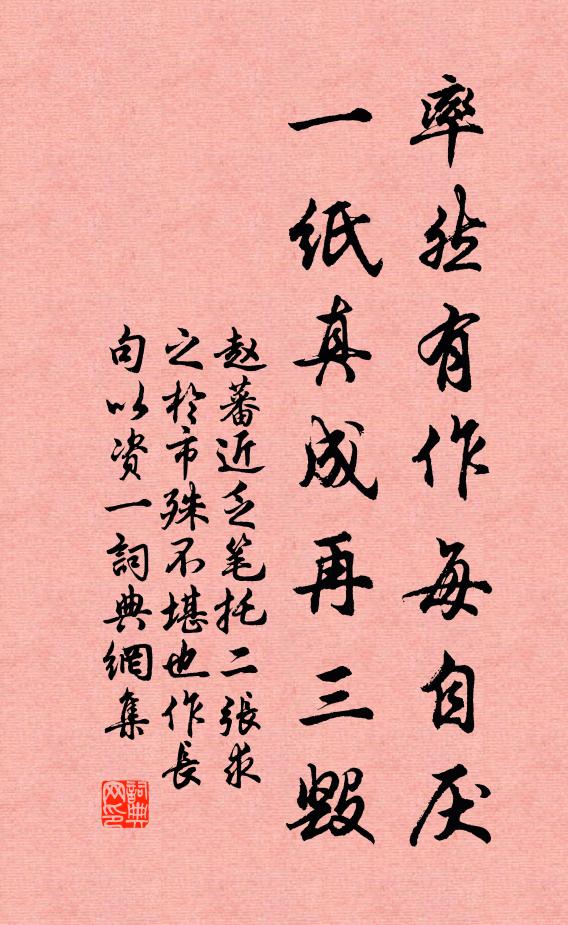 率然有作每自灰
一纸真成再三毁
赵蕃近乏笔托二張求
之於市殊不堪也作長
句以资一詞典網集
詞典网印